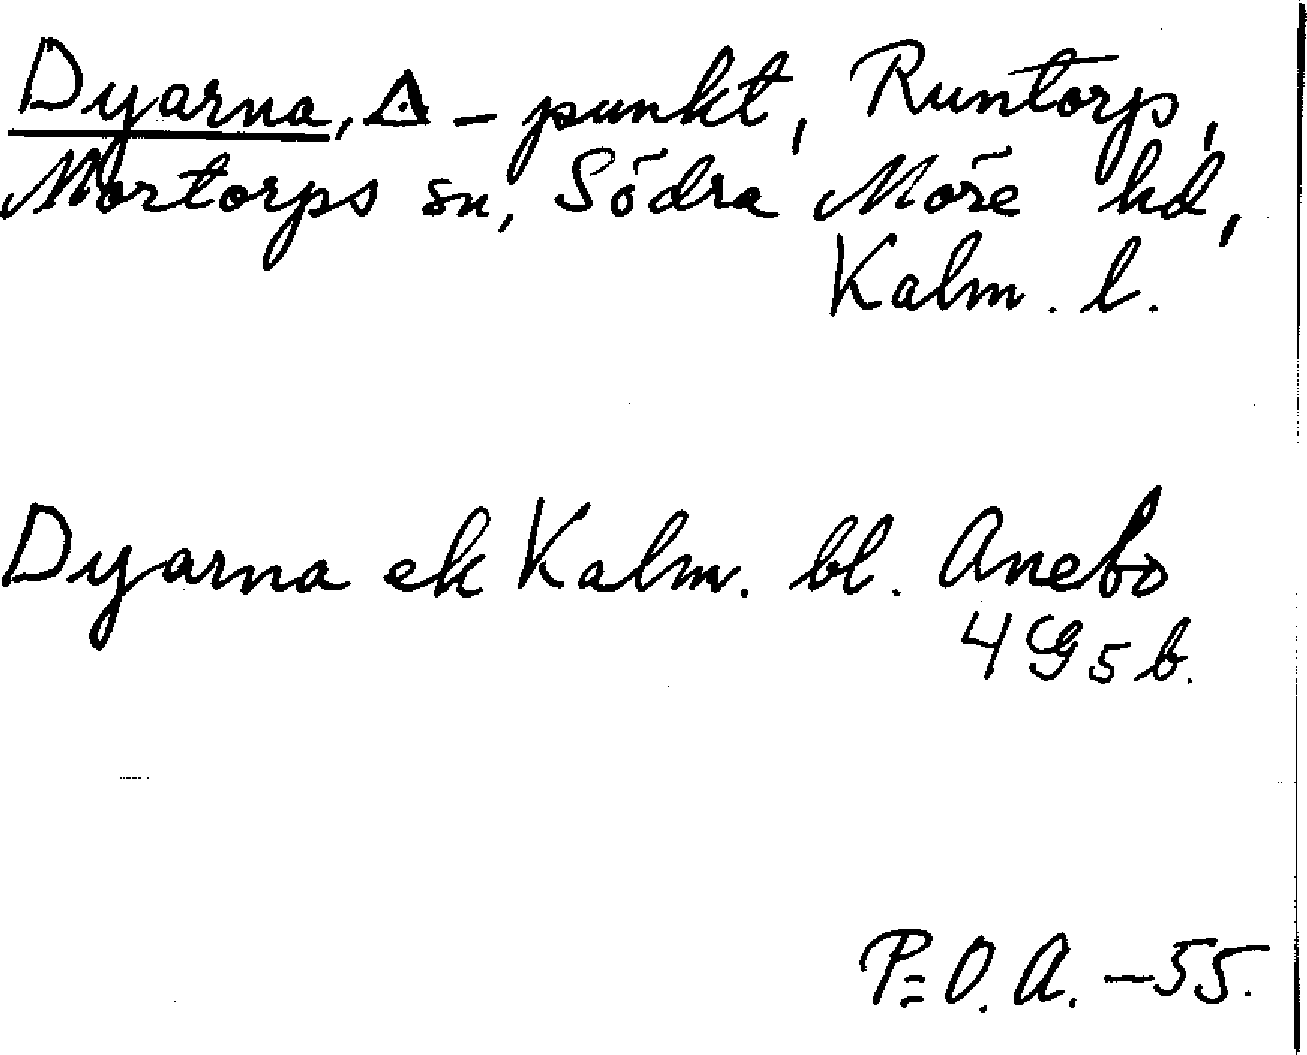 Dyarna, △ - punkt, Runtorp,
Mortorps sn, Södra Möre hd,
Kalm. l.
Dyarna ek Kalm. bl. Anebo
4 G 5 b.
P=O. A. -55.